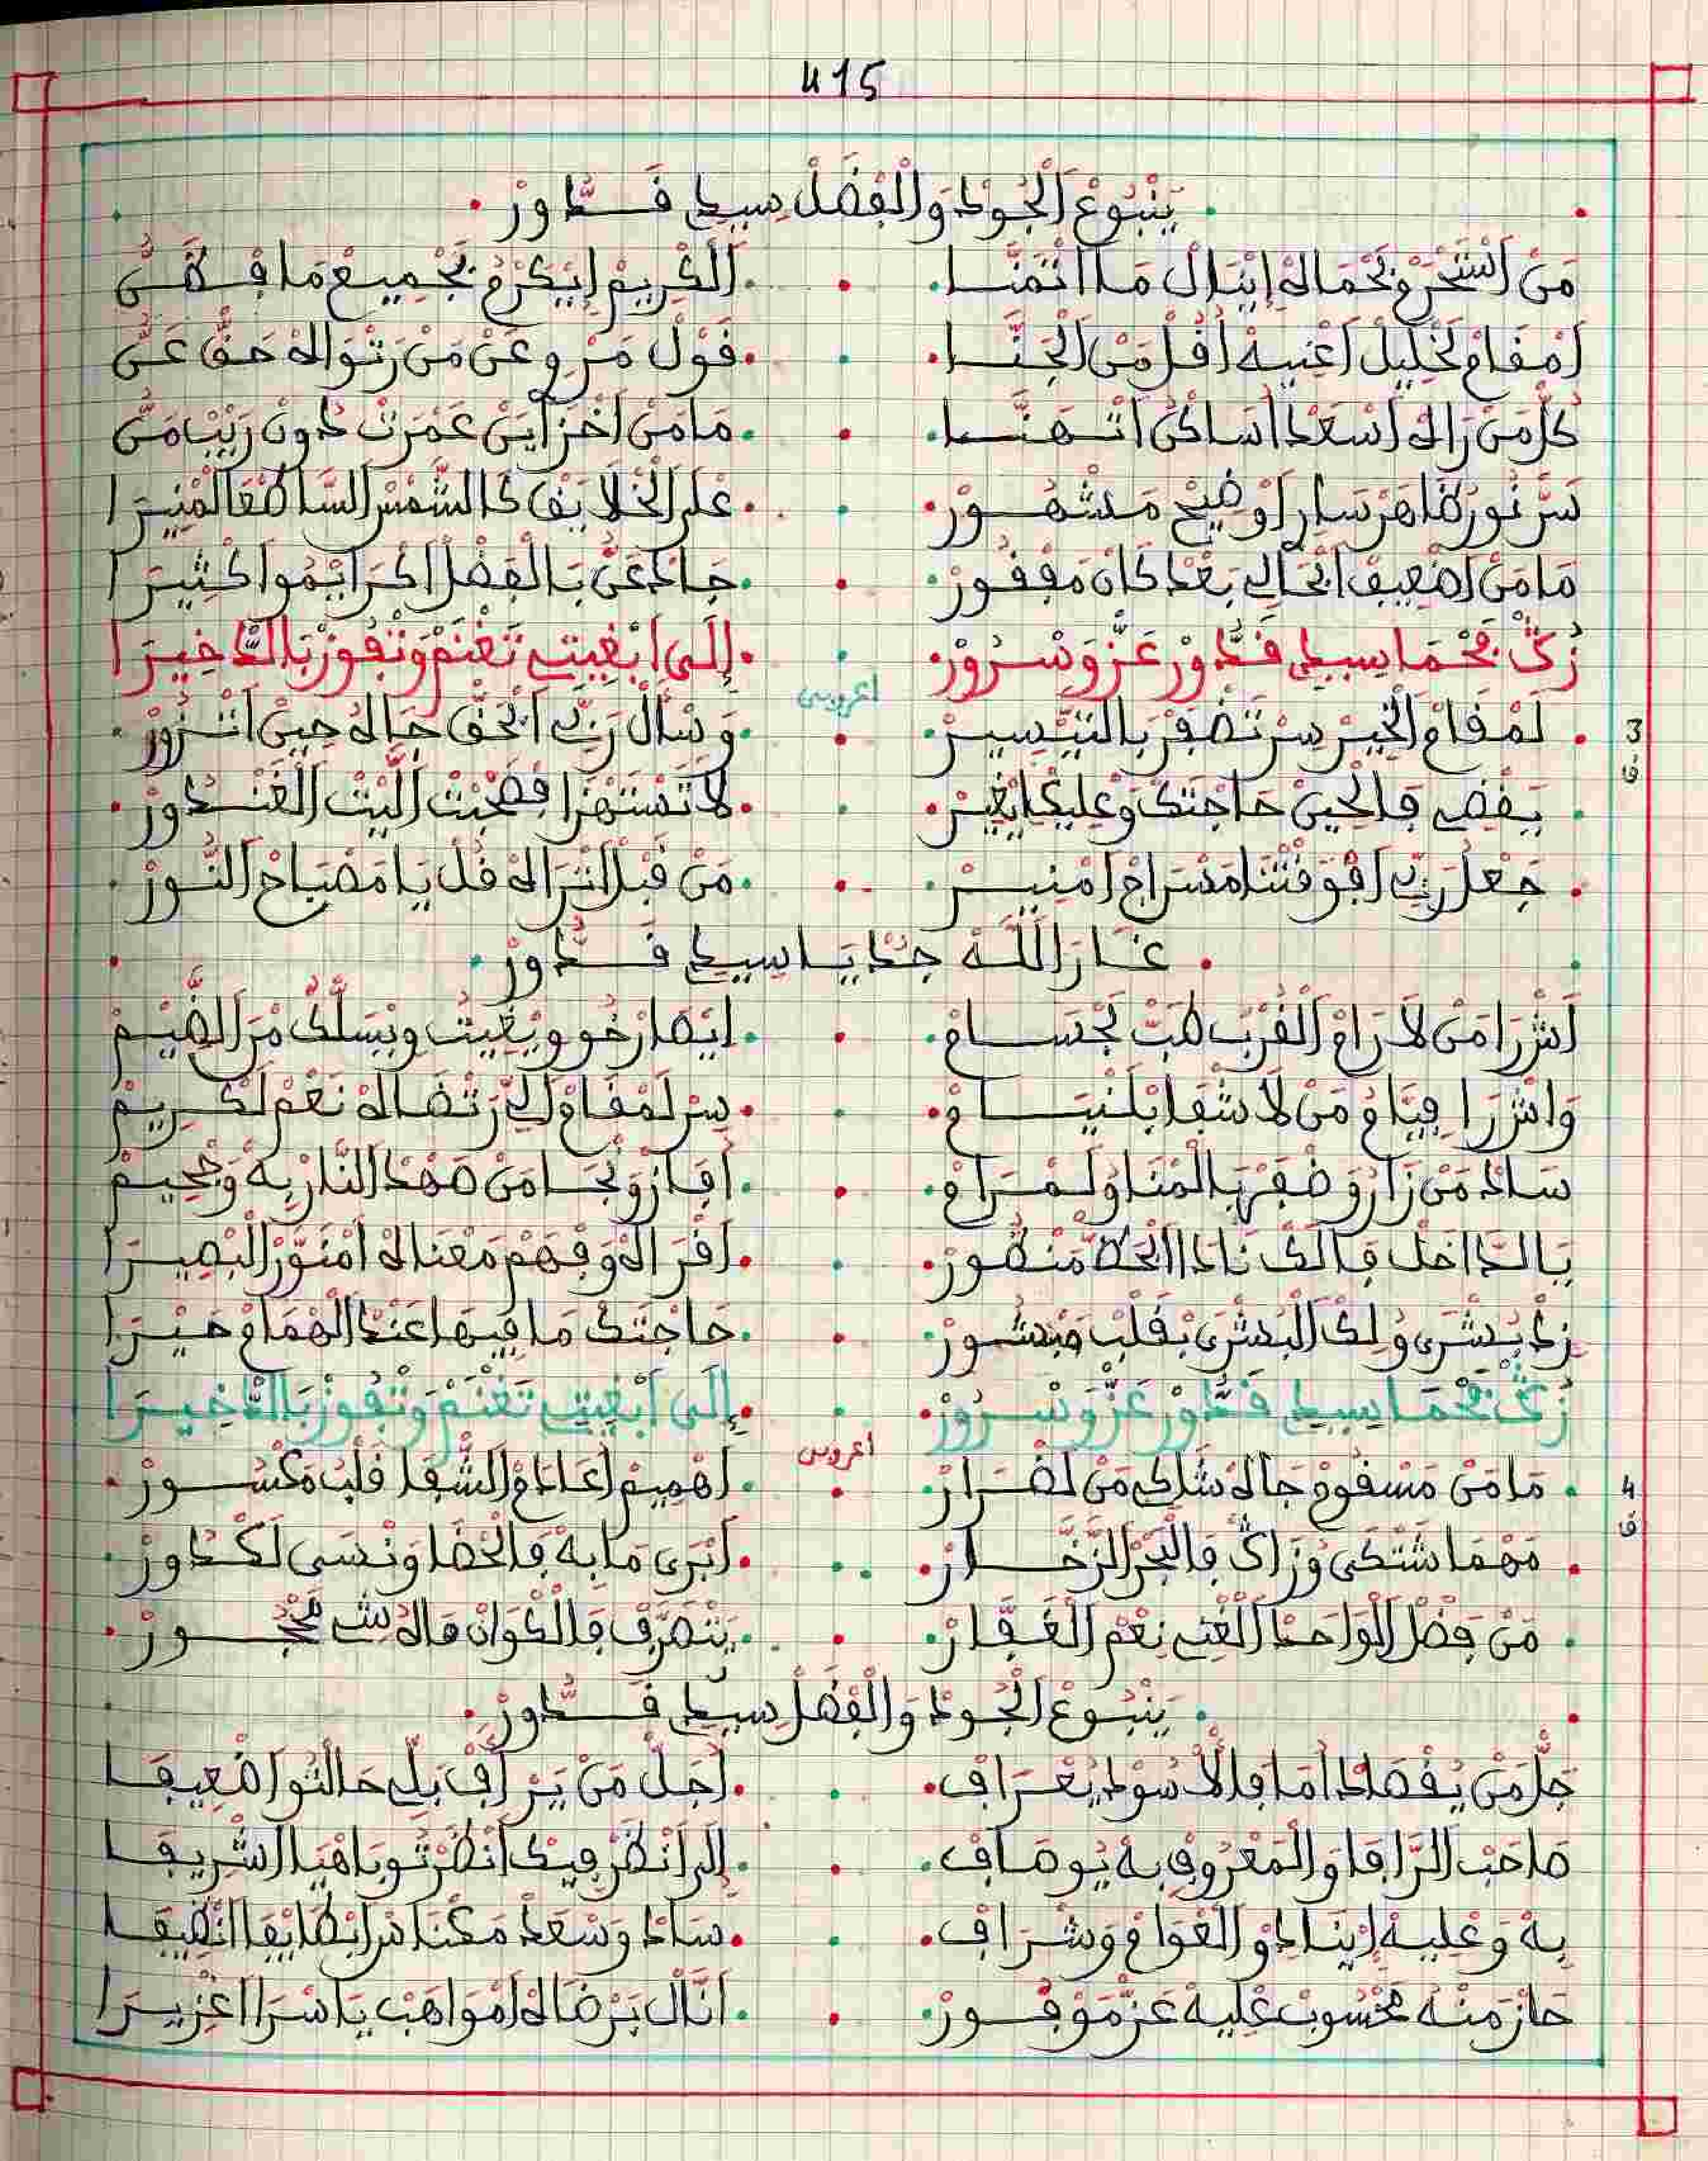 415
يَنْبُوعْ الْجُودْ وَالْفَضْلْ سِيدِي قَدُّورْ
مَنْ اسْتَحْرَمْ بَحْمَاهْ إِينَالْ مَا اتْمَنَّا . الْكْرِيمْ إِيكَرْمُ بَجْمِيعْ مَا
امْقَامْ لَخْلِيلْ اغْنِيهْ أَفْلْ مَنْ الْجَنَّا . قَوْلْ مَرْوِي عَنْ مَنْ رَتْوَاهْ حَقْ عَنِّي
كُلْ مَنْ رَاهْ اسْعَدْ اسَاكَنْ اتْهَنَّا . مَا مَنْ اخْزَايَنْ عَمْرَتْ دُونْ رَيْبْ مَنِّي
سَرّ نُورُ ظَاهَرْ سَارْ اوْضِيحْ مَشْهُورْ . عْلَى الْخْلَايَقْ كَالشَّمْسْ السَّاطْعَا لَمْنِيرَا
مَا مَنْ اضْعِيفْ الْحَالِي بَعْدْ كَانْ مَفْقُورْ . جَادْ عَنُّ بَالْفَضْلْ اكْرَايْمُو اكْثِيرَا
زُكْ بَحْمَا سِيدِي قَدُّورْ عَزّ وَسْرُورْ . إِلَى ابْغِيتِ تَغْنَمْ وَتْفُوزْ بَالدْخِيرَا
اعروبي
3 لَمْقَامْ الْخَيْرْ سِرْ تَضْفَرْ بَالتَّيْسِيرْ . وَسْأَلْ رَبِّي ابْحَقْ جَاهُ حِينْ اتْزُورْ
ق يَقْضِي فَالْحِينْ حَاجْتَكْ وَعْلِيكْ ايْغِيرْ . لَا تَسْتَهْزَا فْصَحْبْتْ اللِّيتْ الْغَنْدُورْ
جَعْلْ رَبِّي افْوَقْتْنَا مَسْرَاجْ امْنِيرْ . مَنْ قَبْلْ انْرَاهْ قُلْ يَا مَصْبَاحْ النُّورْ
غَارَ اللَّهْ جُدْ يَا سِيدِي قَدُّورْ
اشْرَا مَنْ لَا رَامْ الْقُرْبْ طَبّ لَجْسَامْ . ايْصَارْخُو وِيْغِيتُ وِيْسَلْكُ مَنْ الضَّيْمْ
وَاشْرَا فِيَّامُ مَنْ لَا شْفَا بْلَنْيَامْ . سِرْ لَمْقَامْ اللِّي رَتْضَاهْ نَعْمْ لَكْرِيمْ
سَادْ مَنْ زَارُ وَضْفَرْ بَالْمْنَا وُلَمْرَامْ . افَازْ وَنْجَا مَنْ صَهْدْ النَّارْ بِهْ وَجْحِيمْ
يَا الدَّاخَلْ فَالَكْ نَادَا الْحَظّ مَنْظُورْ . اقْرَاهْ وَفْهَمْ مَعْنَاهْ امْنَوَّرْ الْبْصِيرَا
زِدْ بُشْرَى وُلِكْ الْبُشْرَى بْقَلْبْ مَبْشُورْ . حَاجْتَكْ مَا فِيهَا عَنْدْ الْهْمَامْ حَيْرَا
زُكْ بَحْمَا سِيدِي قَدُّورْ عَزّ وَسْرُورْ . إِلَى ابْغِيتِ تَغْنَمْ وَتْفُوزْ بَالدْخِيرَا
اعروبي
4 مَا مَنْ مَسْقُومْ جَاهْ شَاكِي مَنْ لَضْرَارْ . اهْمِيمْ اعَادَمْ الشّْفَا قَلْبُ مَكْسُورْ
ق مَهْمَا شْتْكَى وُزَاكْ فَالْبَحْرْ الزَّخَّارْ . ابْرَى مَا بِهْ فَالْحْضَا وَنْسَى لَكْدُورْ
مَنْ فَضْلْ الْوَاحَدْ الْغْنِي نِعْمْ الْغَفَّارْ . يَتْصَرَّفْ فَالْكْوَانْ مَاهُ شِي مَحْجُورْ
يَنْبُوعْ الْجُودْ وَالْفَضْلْ سِيدِي قَدُّورْ
جَلّ مَنْ يُقْصَادْ امَا فَالْاسُودْ يُعْرَافْ . اجَلْ مَنْ يَرْأَفْ بَلِّي حَالْتُو اضْعِيفَا
صَاحَبْ الرَّافَا وَالْمَعْرُوفْ بِهْ يُوصَافْ . إِلَى انْظَرْ فِيكْ انْظَرْتُو بَاهْيَا اشْرِيفَا
بِهْ وَعْلِيهْ إِينَادُو الْقْوَامْ وَشْرَافْ . سَادْ وَسْعَدْ مَكْنَاسْ ابْطَايْفَا انْظِيفَا
حَازْ مَنُّهْ مَحْسُوبْ عْلِيهْ عَزّ مَوْفُورْ . انَّالْ بَرْضَاهْ امْوَاهَبْ يَا سْرَا اغْزِيرَا